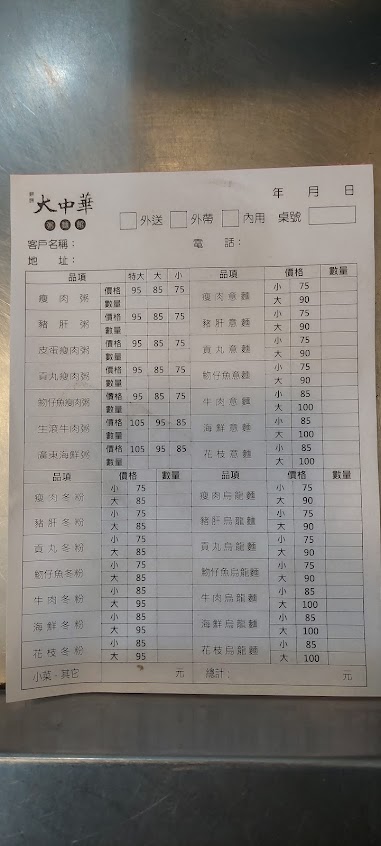 大中華
年 月 日
外送 外帶 內用 桌號
客戶名稱： 電 話：
地 址：
品項 特大 大 小 品項 價格 數量
瘦肉粥 價格 95 85 75 數量 瘦肉意麵 小 75 大 90
豬肝粥 價格 95 85 75 數量 豬肝意麵 小 75 大 90
皮蛋瘦肉粥 價格 95 85 75 數量 貢丸意麵 小 75 大 90
貢丸瘦肉粥 價格 95 85 75 數量 魩仔魚意麵 小 75 大 90
魩仔魚瘦肉粥 價格 95 85 75 數量 牛肉意麵 小 85 大 100
生滾牛肉粥 價格 105 95 85 數量 海鮮意麵 小 85 大 100
廣東海鮮粥 價格 105 95 85 數量 花枝意麵 小 85 大 100
品項 價格 數量 品項 價格 數量
瘦肉冬粉 小 75 大 85 瘦肉烏龍麵 小 75 大 90
豬肝冬粉 小 75 大 85 豬肝烏龍麵 小 75 大 90
貢丸冬粉 小 75 大 85 貢丸烏龍麵 小 75 大 90
魩仔魚冬粉 小 75 大 85 魩仔魚烏龍麵 小 75 大 90
牛肉冬粉 小 85 大 95 牛肉烏龍麵 小 85 大 100
海鮮冬粉 小 85 大 95 海鮮烏龍麵 小 85 大 100
花枝冬粉 小 85 大 95 花枝烏龍麵 小 85 大 100
小菜．其它 元 總計： 元